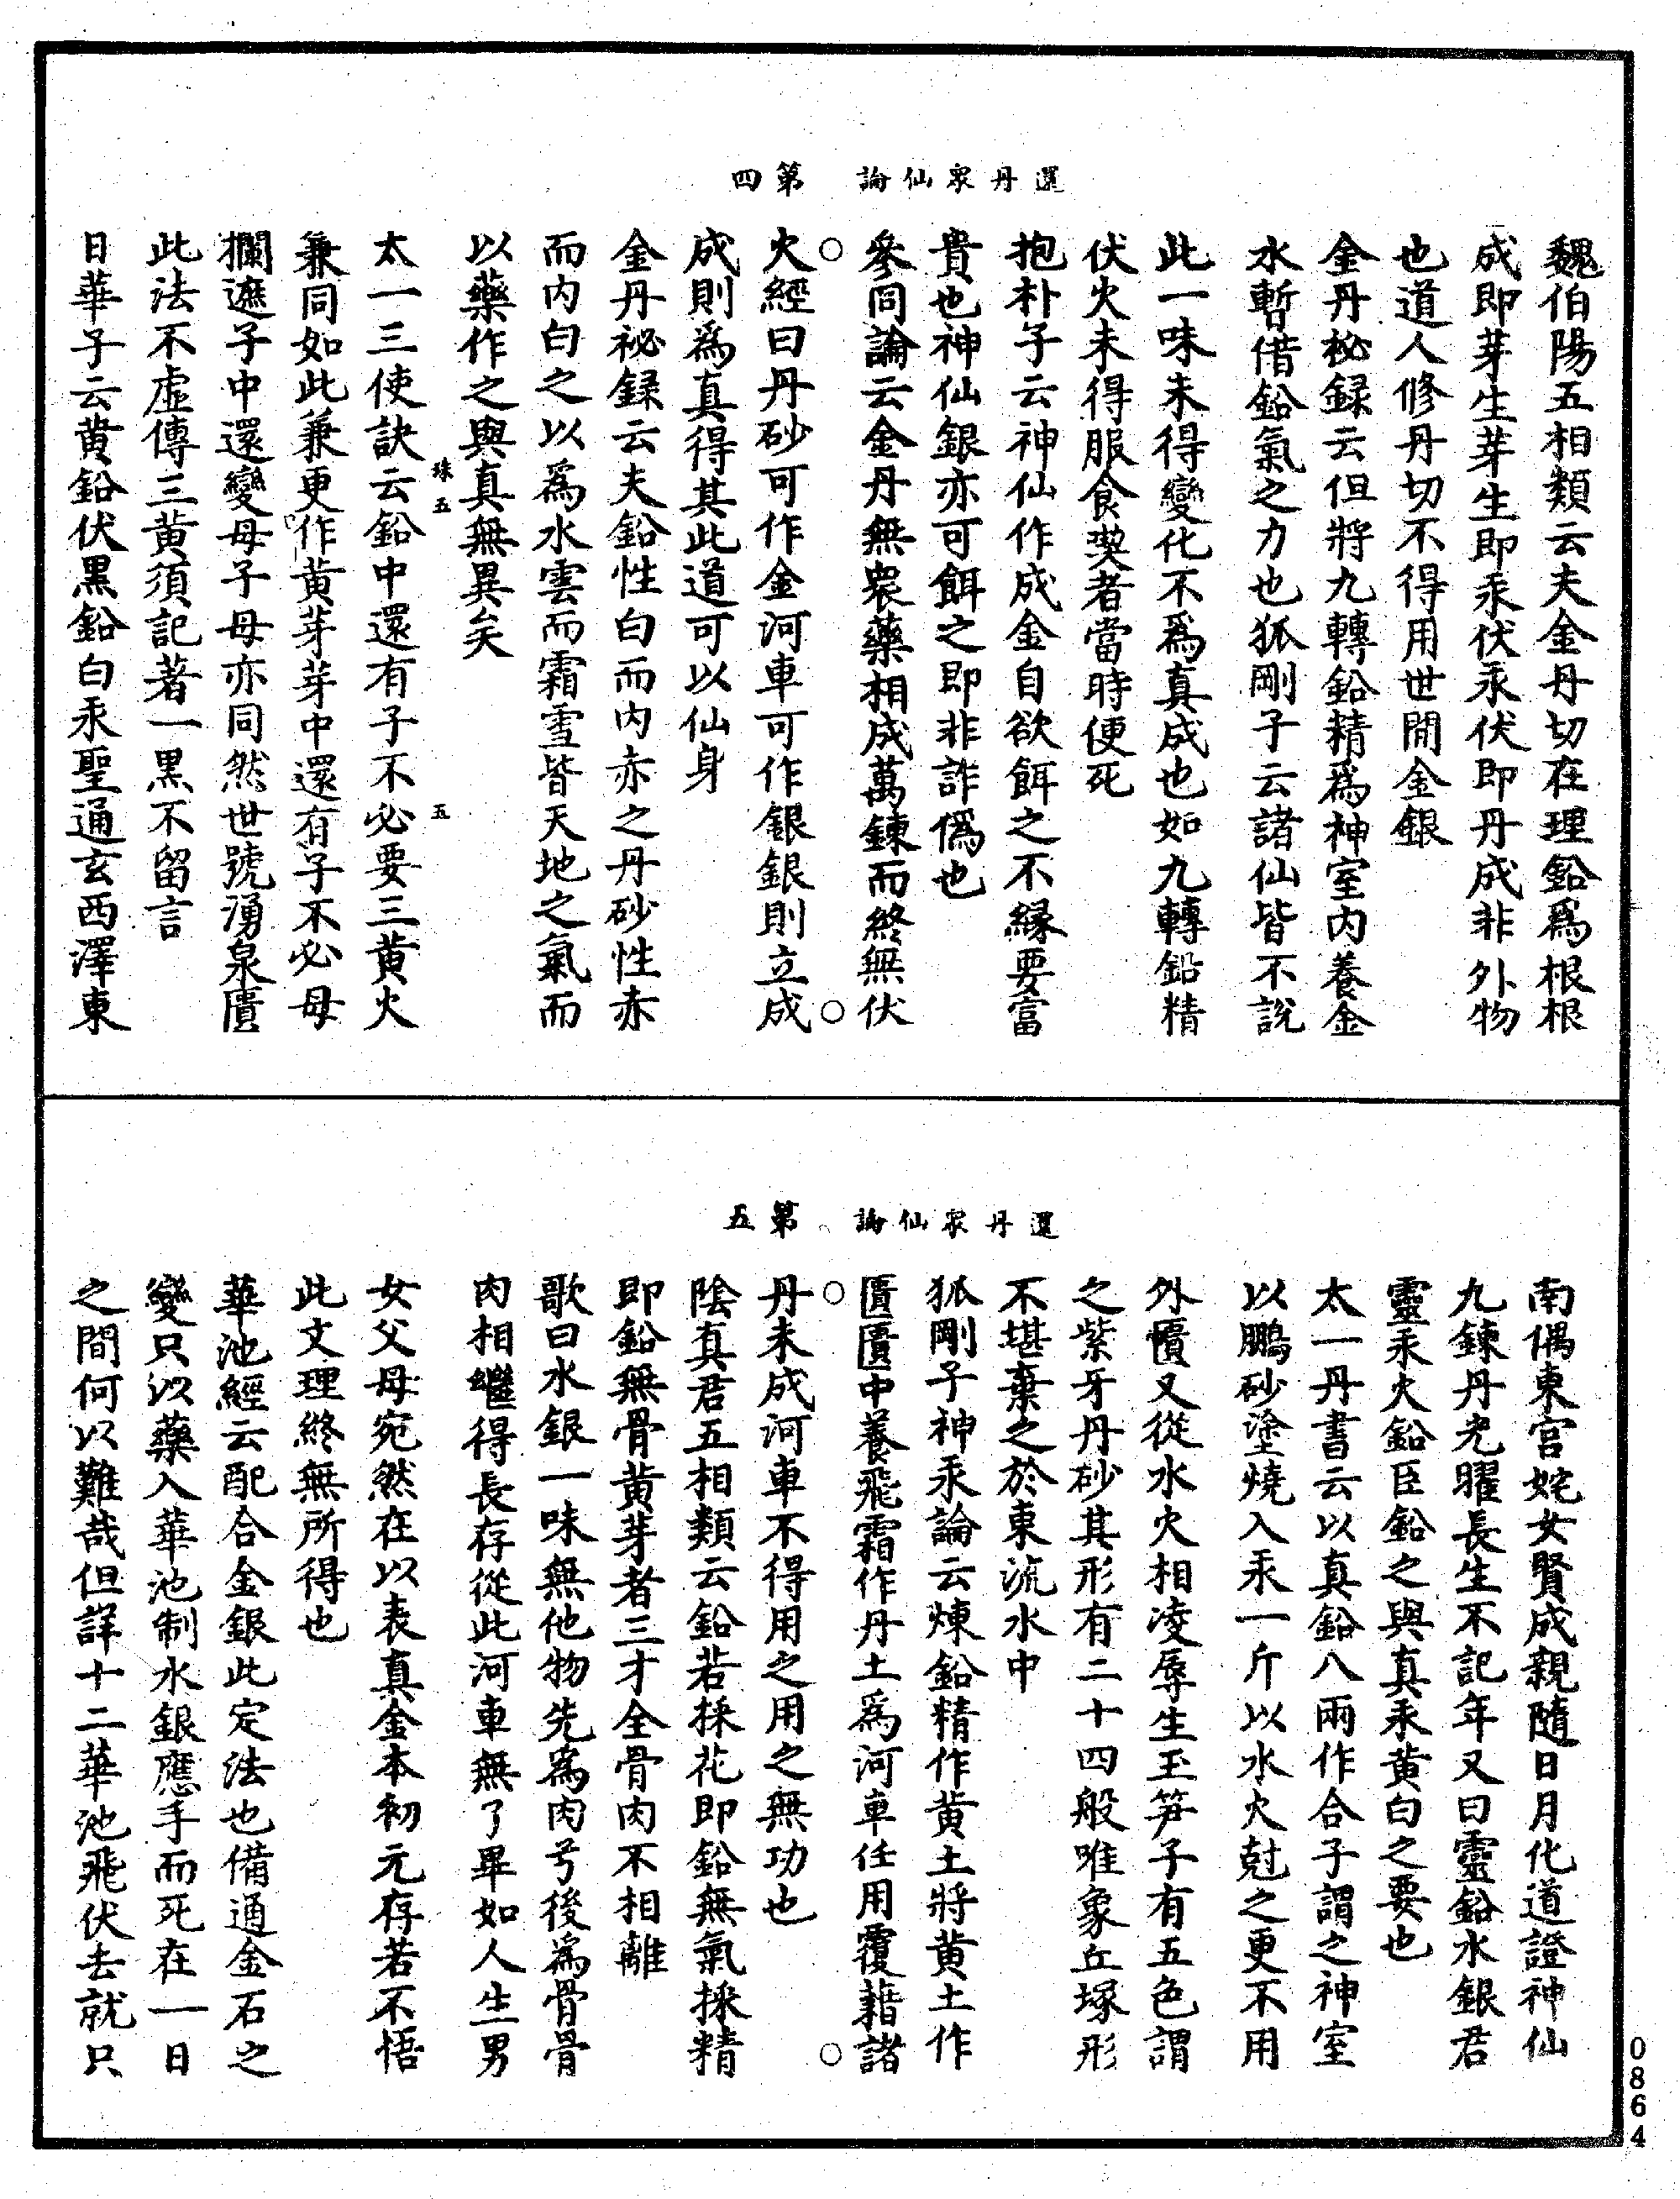 還丹衆仙論　第四
魏伯陽五相類云夫金丹切在理鉛爲根根
成即芽生芽生即汞伏汞伏即丹成非外物
也道人修丹切不得用世間金銀
金丹秘録云但將九轉鉛精爲神室内養金
水暫借鉛氣之力也狐剛子云諸仙皆不説
此一味未得變化不爲真成也如九轉鉛精
伏火未得服食喫者當時便死
抱朴子云神仙作成金自欲餌之不縁要富
貴也神仙銀亦可餌之即非詐僞也
參同論云金丹無衆藥相成萬鍊而終無伏
火經曰丹砂可作金河車可作銀銀則立成
成則爲真得其此道可以仙身
金丹祕録云夫鉛性白而内赤之丹砂性赤
而内白之以爲水雲而霜雪皆天地之氣而
以藥作之與真無異矣
珠五　五
太一三使訣云鉛中還有子不必要三黄火
兼同如此兼更作黄芽芽中還有子不必母
攔遮子中還變母子母亦同然世號湧泉匱
此法不虚傳三黄須記著一黑不留言
日華子云黄鉛伏黒鉛白汞聖通玄西澤東
還丹衆仙論　第五
南偶東宫姹女賢成親隨日月化道證神仙
九鍊丹光曜長生不記年又曰靈鉛水銀君
靈汞火鉛臣鉛之與真汞黄白之要也
太一丹書云以真鉛八兩作合子謂之神室
以鵬砂塗燒入汞一斤以水火尅之更不用
外樻又從水火相凌辱生玉笋子有五色謂
之紫牙丹砂其形有二十四般唯象丘塚形
不堪棄之於東流水中
狐剛子神汞論云煉鉛精作黄土將黄土作
匱匱中養飛霜作丹土爲河車任用覆藉諸
丹未成河車不得用之用之無功也
陰真君五相類云鉛若採花即鉛無氣採精
即鉛無骨黄芽者三才全骨肉不相離
歌曰水銀一味無他物先爲肉兮後爲骨骨
肉相繼得長存從此河車無了畢如人生男
女父母宛然在以表真金本初元存若不悟
此文理終無所得也
華池經云配合金銀此定法也備通金石之
變只以藥入華池制水銀應手而死在一日
之間何以難哉但詳十二華池飛伏去就只
0864